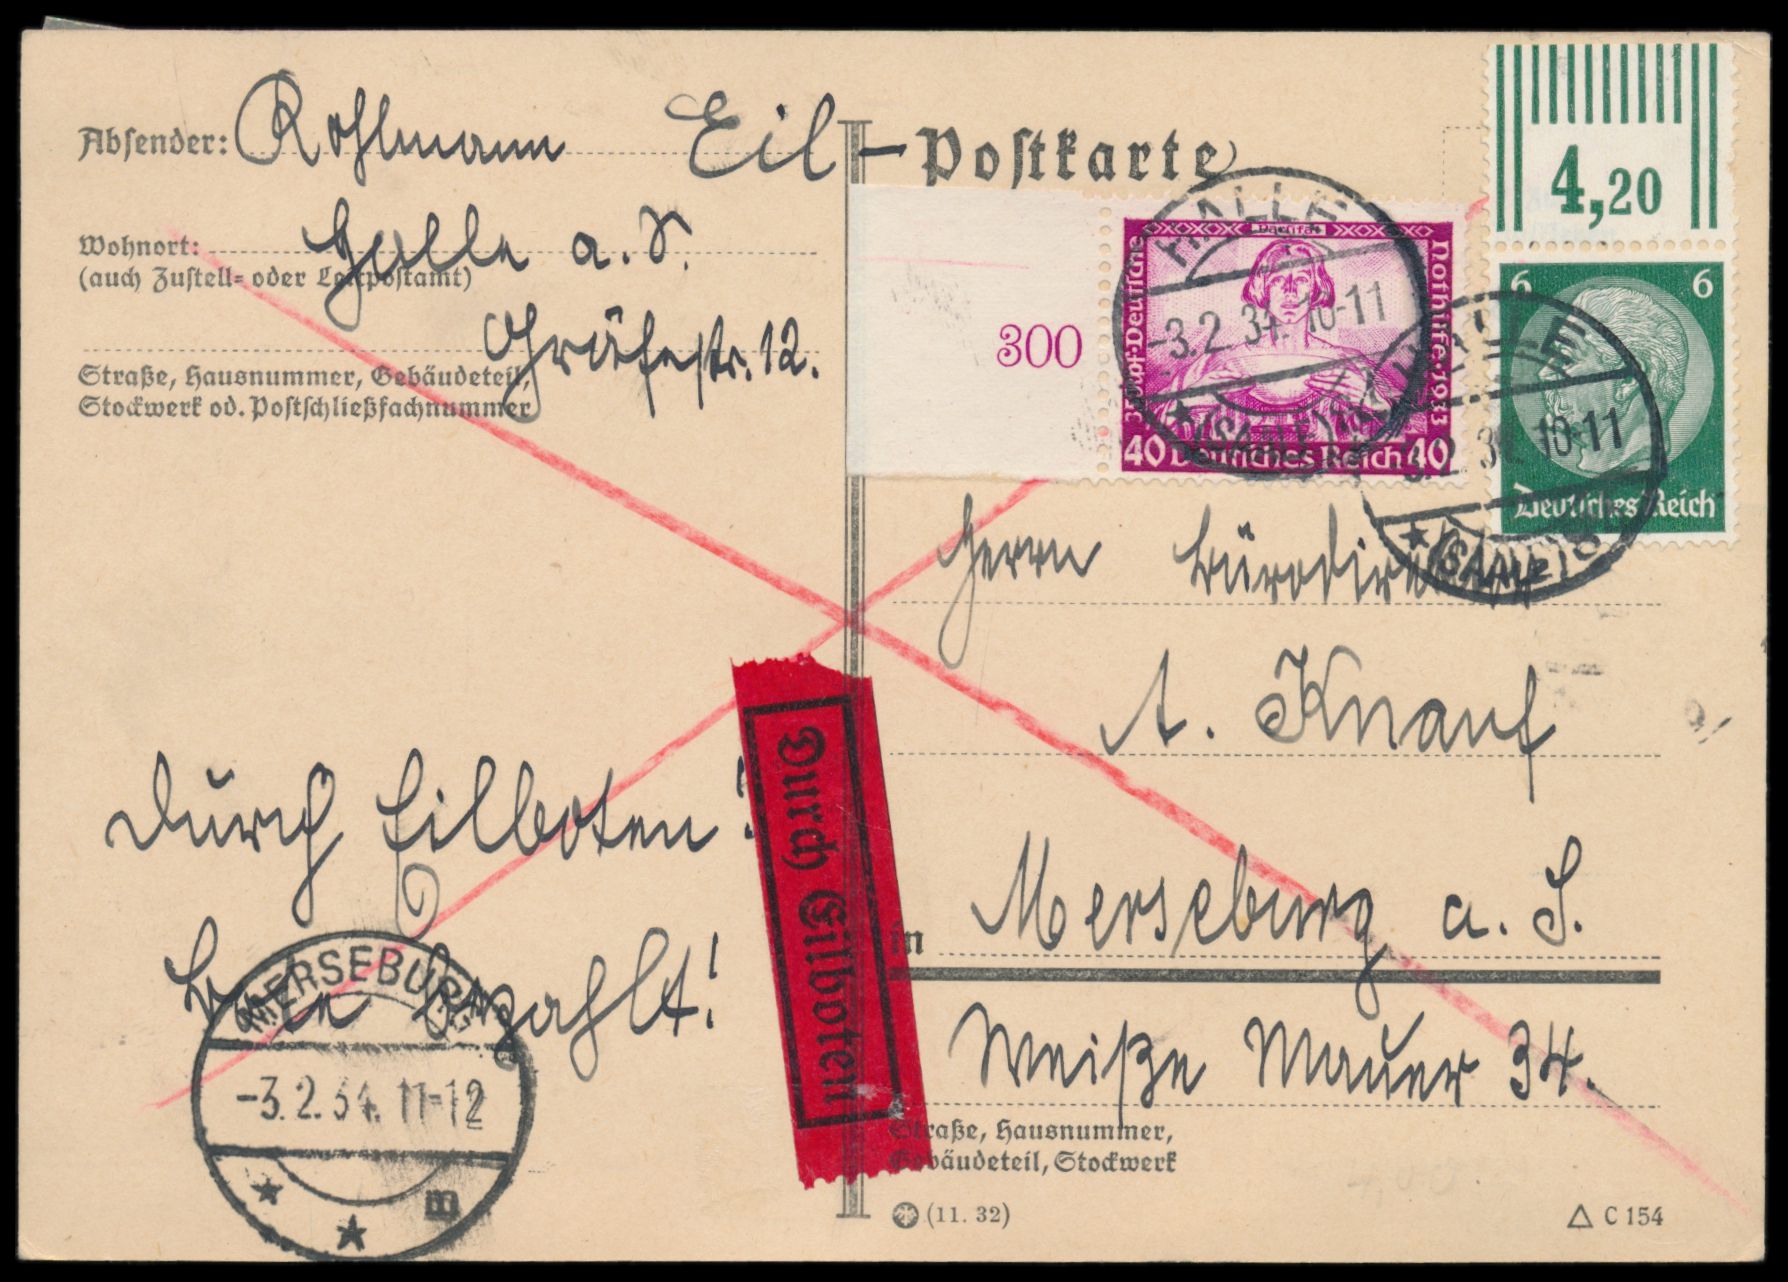 Absender: Rohlmann
Eil-Postkarte
Wohnort: Halle a. S.
(auch Zustell- oder Leitpostamt)
Gräfestr. 12.
Straße, Hausnummer, Gebäudeteil,
Stockwerk od. Postschließfachnummer
4,20
300
Parsifal
35+40Pf Deutsche Nothilfe 1933
40 Deutsches Reich 40
6 6
Deutsches Reich
HALLE
-3.2.34.10-11
* (SAALE)
HALLE
-3.2.34.10-11
* (SAALE)
Herrn Bürodirektor
A. Knauf
in Merseburg a. S.
Weiße Mauer 34.
Straße, Hausnummer,
Gebäudeteil, Stockwerk
Durch Eilboten!
Bote bezahlt!
Durch Eilboten
MERSEBURG
-3.2.34.11-12
m
(11. 32)
C 154